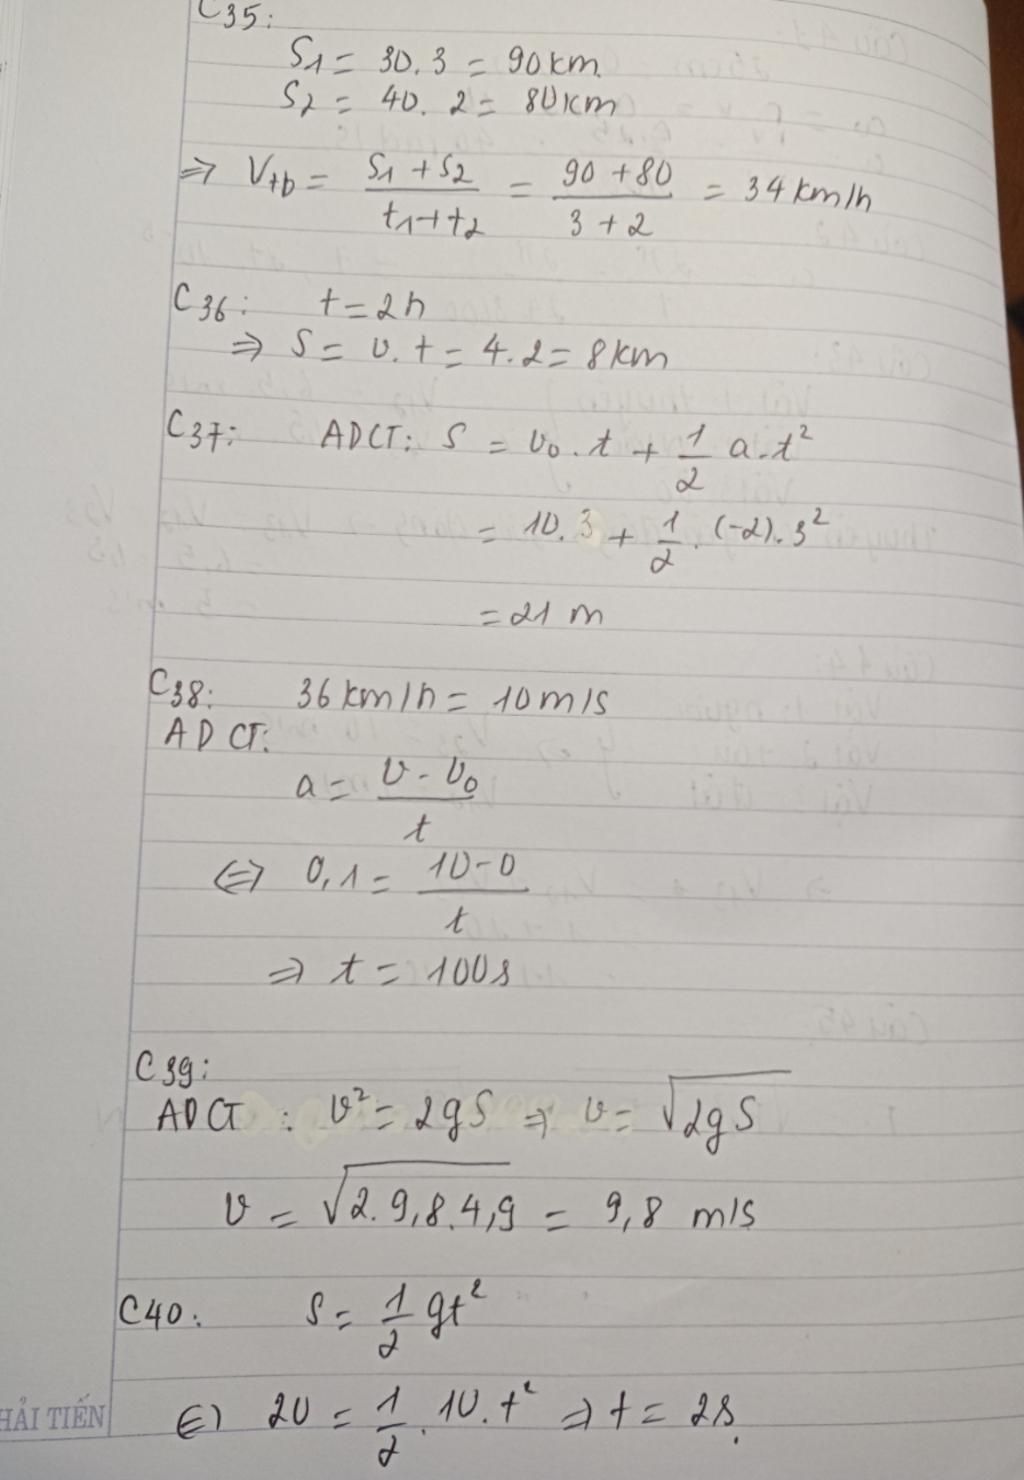 C35:
S1 = 30.3 = 90km
S2 = 40.2 = 80km
=> Vtb = (S1 + S2)/(t1 + t2) = (90 + 80)/(3 + 2) = 34 km/h
C36: t = 2h
=> S = v.t = 4.2 = 8km
C37: ADCT: S = v₀.t + 1/2 a.t²
= 10.3 + 1/2.(-2).3²
= 21 m
C38: 36km/h = 10m/s
ADCT:
a = (v - v₀)/t
<=> 0,1 = (10-0)/t
=> t = 100s
C39:
ADCT: v² = 2gS => v = √(2gS)
v = √(2.9,8.4,9) = 9,8 m/s
C40: S = 1/2 gt²
<=> 20 = 1/2.10.t² => t = 2s.
HẢI TIẾN